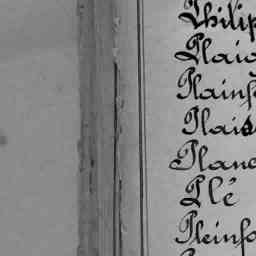 Philip
Plaid
Plainf
Plais
Planc
Plé
Pleinfo